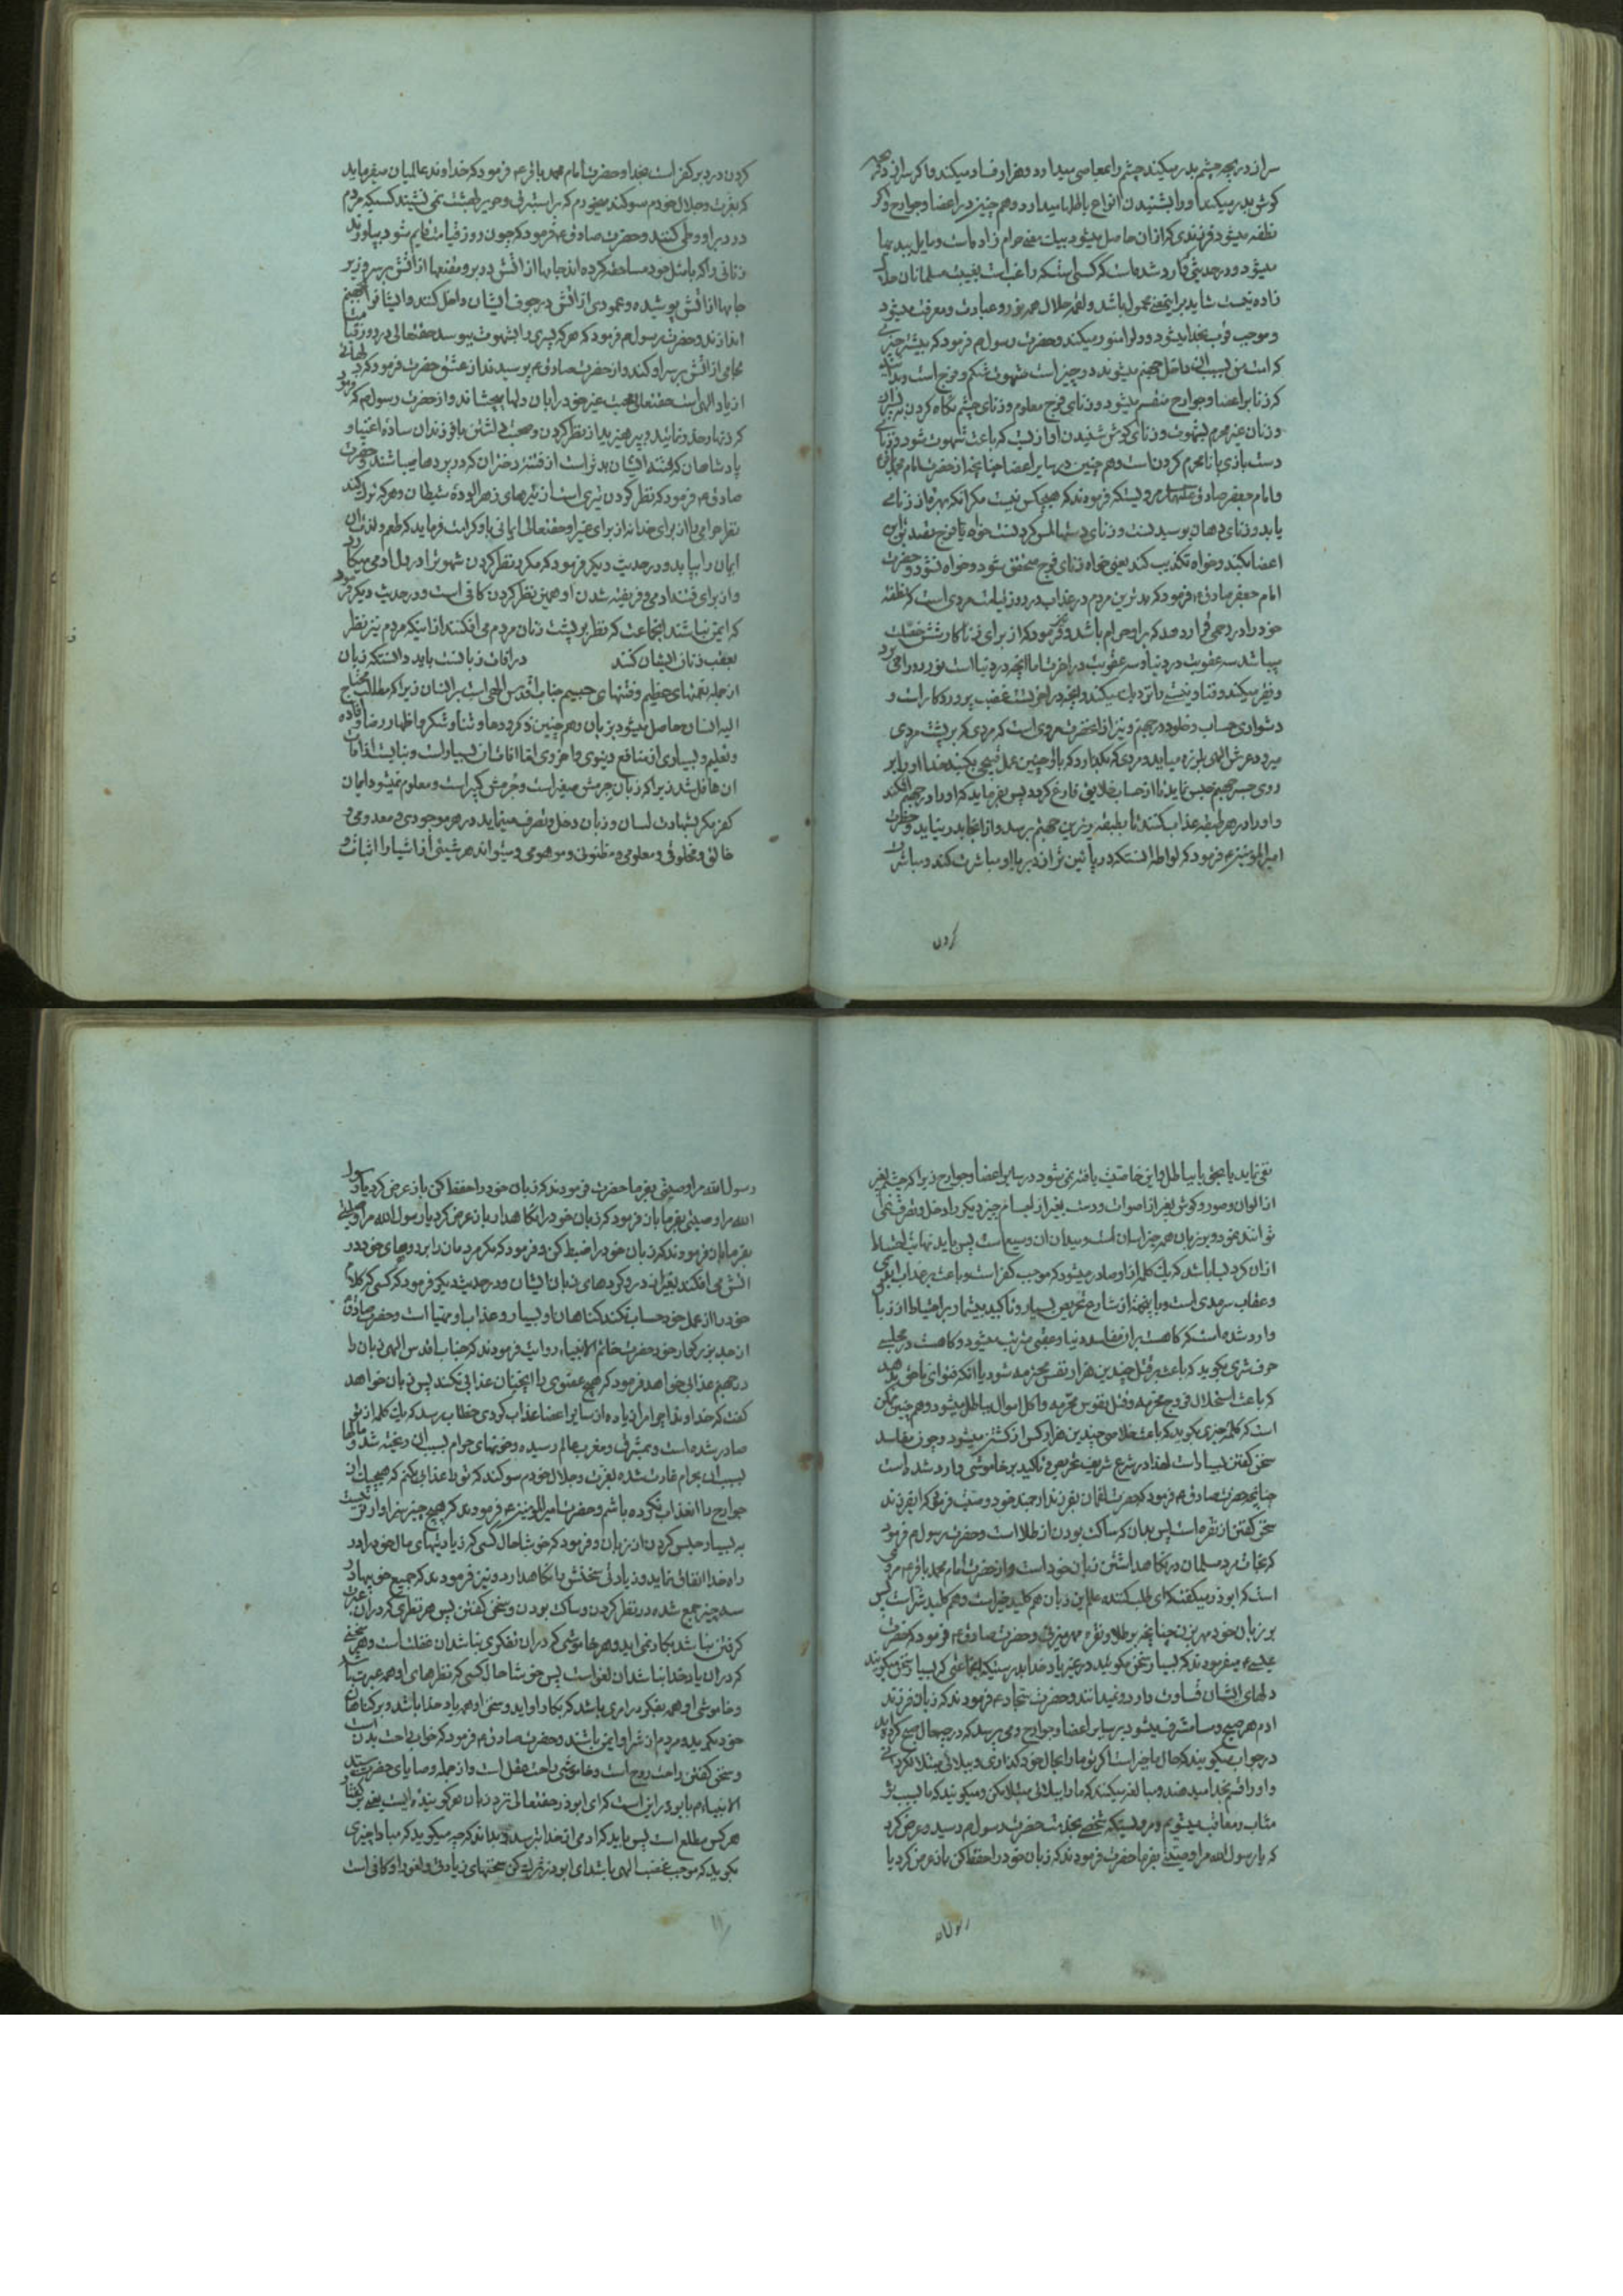 سر از دریچه چشم بدر میکند چشم را بمعاصی میدارد و هزار فساد میکند و اگر سر از دریچه
کوش بدر میکند او را بشنیدن انواع باطلها میدارد و هم چنین در اعضا و جوارح و اگر
نطفه میشود فرزندی که از آن حاصل میشود بیک معنی حرام زاده است و مایل ببدیها
میشود و در حدیثی وارد شده است که کسی که راغب است بغیبت مسلمانان حلال
زاده نیست شاید بر اینمعنی محمول باشد و لقمه حلال همه نور و عبادت و معرفت میشود
و موجب قرب بخدا میشود و دل را منور میکند و حضرت رسول م فرمود که بیشتر چیزی
که امت من بسبب آن داخل جهنم میشوند دو چیز است شهوت شکم و فرج است و بدانکه
که زنا بر اعضا و جوارح منقسم میشود و زنای فرج معلوم و زنای چشم نگاه کردن به پسران
و زنان غیر محرم بشهوت و زنای کوش شنیدن آوازیست که باعث شهوت شود و زنای
دست بازی با نامحرم کردن است و هم چنین در سایر اعضا چنانچه از حضرت امام محمد باقر
و امام جعفر صادق علیهما مرویست که فرمودند که هیچکس نیست مکر انکه بهره از زنا می
یابد و زنای دهان بوسیدنست و زنای دستها لمس کردنست خواه یا فرج تصدیق این
اعضا بکند و خواه تکذیب کند یعنی خواه زنای فرج متحقق شود و خواه نشود و حضرت
امام جعفر صادق ع فرمود که بدترین مردم در عذاب در روز قیامت مردی است که نطفه
خود را در رحمی قرار دهد که بر او حرام باشد و فرمود که از برای زناکار شش خصلت
میباشد سه عقوبت در دنیا و سه عقوبت در آخرت اما آنچه در دنیا است نور رو را می برد
و فقیر میکند و فنا و نیستی را نزدیک میکند و آنچه در آخرتست غضب پروردکار است و
دشواری حساب و خلود در جهنم و نیز از آنحضرت مروی است که مردی که بر پشت مردی
میرود عرش الهی بلرزه میآید و مردی که بگذارد که با او چنین عمل قبیحی بکنند خدا او را بر
روی جسر جهنم حبس نماید تا از حساب خلایق فارغ کردد پس بفرماید که او را در جهنم افکند
و او را در هر طبقه عذاب کنند تا بطبقه زیرین جهنم برسد و از انجا بدر نیاید و حضرت
امیر المؤمنین ع فرمود که لواطه آنستکه در پائین تر از دبر با او مباشرت کنند و مباشرت
کردن
کردن در دبر کفر است بخدا و حضرت امام محمد باقر ع فرمود که خداوند عالمیان میفرماید
که بعزت و جلال خودم سوکند میخورم که بر استبرق و حریر بهشت نمی نشیند کسیکه مردم
در دبر او وطی کنند و حضرت صادق ع فرمود که چون روز قیامت قایم شود بیاورند
زنانی را که با مثل خود مساحقه کرده اند جامها از آتش در بر و مقنعها از آتش بر سر و زیر
جامها از آتش پوشیده و عمودی از آتش در جوف ایشان داخل کنند و ایشانرا بجهنم
اندازند و حضرت رسول م فرمود که هر که پسری را بشهوت ببوسد حقتعالی در روز قیامت
لجامی از آتش بر سر او کند و از حضرت صادق ع پرسیدند از عشق حضرت فرمود که دلهائی
از یاد الهی است حقتعالی محبت غیر خود را بآن دلها بچشاند و از حضرت رسول م که فرمود
که زنهار حذر نمائید و بپرهیزید از نظر کردن و صحبت داشتن با فرزندان ساده اغنیا و
پادشاهان که فتنه ایشان بدتر است از فتنه دختران که در پردها میباشند و حضرت
صادق ع فرمود که نظر کردن تیری است از تیرهای زهر آلوده شیطان و هر که ترک کند
نظر حرامی را از برای خدا نه از برای غیر او حقتعالی ایمانی باو کرامت فرماید که طعم و لذت آن
ایمان را بیابد و در حدیث دیکر فرمود که مکرر نظر کردن شهوتی در دل آدمی میکارد
و از برای فتنه آدمی و فریفته شدن او همین نظر کردن کافی است و در حدیث دیکر فرمود
که ایمن نباشند انجماعت که نظر بر پشت زنان مردم می افکنند از اینکه مردم نیز نظر
بعقب زنان ایشان کنند در آفات زبانست باید دانستکه زبان
از جمله نعمتهای عظیم و فتنهای جسیم جناب اقدس الهی است بر انسان زیرا که مطالب محتاج
الیه انسان حاصل میشود بزبان و هم چنین ذکر و دعا و ثنا و شکر و اظهار و رضا و افاده
و تعلیم و بسیاری از منافع دنیوی و اخروی اما آفات آن بسیار است و نباید از آفات
آن غافل شد زیرا که زبان جرمش صغیر است و جرمش کبیر است و معلوم نمیشود ایمان
کفر مکر بشهادت لسان و زبان دخل و تصرف مینماید در هر موجودی و معدومی و
خالق و مخلوقی و معلومی و مظنونی و موهومی و میتواند هر شیئی از اشیا را اثبات و
نفی نماید یا بحق یا بباطل و این خاصیت یافت نمی شود در سایر اعضا و جوارح زیرا که چشم بغیر
از الوان و صور و کوش بغیر از اصوات و دست بغیر از اجسام چیز دیکر را دخل و تصرف نمی
توانند نمود و بر زبان همه چیز آسان است و میدان آن وسیع است پس باید نهایت احتیاط
از آن کرد بسا باشد که یک کلمه از او صادر میشود که موجب کفر است و باعث عذاب ابدی
و عقاب سرمدی است و باینجهة از شارع تحریص بسیار و تاکید بیشمار بر احتیاط از زبان
وارد شده است که کاهست بر آن مفاسد دنیا و عقبی مترتب میشود و کاهست در مجلسی
حرف شری بکوید که باعث قتل چندین هزار نفس محترمه شود یا انکه فتوای ناحق بدهد
که باعث استحلال فروج محترمه و قتل نفوس محترمه و اکل اموال بباطل میشود و هم چنین ممکن
است که کلمه خیری بکوید که باعث خلاصی چندین هزار کس از کشتن میشود و چون مفاسد
سخن کفتن بسیار است لهذا در شرع شریف تحریص و تاکید بر خاموشی وارد شده است
چنانچه حضرت صادق ع فرمود که حضرت لقمان بفرزند ارجمند خود وصیت فرمود که ای فرزند
سخن کفتن از نقره است پس بدان که ساکت بودن از طلا است و حضرت رسول م فرمود
که نجات مرد مسلمان در نکاهداشتن زبان خود است و از حضرت امام محمد باقر ع مروی
است که ابوذر میکفت که ای طلب کننده علم این زبان هم کلید خیر است و هم کلید شر است پس
بر زبان خود مهر بزن چنانچه بر طلا و نقره مهر میزنی و حضرت صادق ع فرمود که حضرت
عیسی ع میفرمودند که بسیار سخن مکوئید در غیر یاد خدا بدرستیکه انجماعتی که بسیار سخن میکویند
دلهای ایشان قساوت دارد و نمیدانند و حضرت سجاد ع فرمودند که زبان فرزند
آدم هر صبح و مسا مشرف میشود بر سایر اعضا و جوارح و می پرسد که در چه حال صبح کرده اید
در جواب میکویند که حال ما خیر است اکر تو ما را بحال خود کذاری و ببلائی مبتلا نکردانی
و او را قسم بخدا میدهند و مبالغه میکنند که ما را ببلائی مبتلا مکن و میکویند که ما بسبب تو
مثاب و معاقب میشویم و مرویستکه شخصی بخدمت حضرت رسول م رسید و عرض کرد
که یا رسول الله مرا وصیتی بفرما حضرت فرمودند که زبان خود را حفظ کن باز عرض کرد یا
رسول الله
رسول الله مرا وصیتی بفرما حضرت فرمودند که زبان خود را حفظ کن باز عرض کرد یا رسول
الله مرا وصیتی بفرما باز فرمود که زبان خود را نکاهدار باز عرض کرد یا رسول الله مرا وصیتی
بفرما باز فرمودند که زبان خود را ضبط کن و فرمود که مکر مردمان را بر روهای خود در
آتش می افکند بغیر از دروکردهای زبان ایشان و در حدیث دیکر فرمود که کسی که کلام
خود را از عمل خود حساب نکند کناهان او بسیار و عذاب او مهیا است و حضرت صادق
از جد بزرکوار خود حضرت خاتم الانبیاء روایت فرمودند که جناب اقدس الهی زبان را
در جهنم عذابی خواهد فرمود که هیچ عضوی را آنچنان عذابی نکند پس زبان خواهد
کفت که خداوندا چرا مرا زیاده از سایر اعضا عذاب کردی خطاب رسد که یک کلمه از تو
صادر شده است و بمشرق و مغرب عالم رسیده و خونهای حرام بسبب آن ریخته شد و مالها
بسبب آن بحرام غارت شده بعزت و جلال خودم سوکند که تو را عذابی بکنم که هیچیک از
جوارح را آنعذاب نکرده باشم و حضرت امیر المؤمنین ع فرمودند که هیچ چیز سزاوارتر نیست
به بسیار حبس کردن از زبان و فرمود که خوشا حال کسی که زیادتیهای مال خود را در
راه خدا انفاق نماید و زیادتی سخنش را نکاهدارد و نیز فرمودند که جمیع خوبیها در
سه چیز جمع شده در نظر کردن و ساکت بودن و سخن کفتن پس هر نظری که در آن عبرت
کرفتن نباشد بکار نمی آید و هر خاموشی که در آن تفکری نباشد آن غفلت است و هر سخنی
که در آن یاد خدا نباشد آن لغو است پس خوشا حال کسی که نظرهای او همه عبرت باشد
و خاموشی او همه بفکر باشد که بکار او آید و سخن او همه یاد خدا باشد و بر کناهان
خود بکرید و مردم از شر او ایمن باشند و حضرت صادق ع فرمود که خواب راحت بدن است
و سخن کفتن راحت روح است و خاموشی راحت عقل است و از جمله وصایای حضرت سید
الانبیاء م بابوذر این است که ای ابوذر حقتعالی نزد زبان هر کوینده ایست یعنی بر کفتار
هر کس مطلع است پس باید که آدمی از خدا بترسد و بداند که چه میکوید که مبادا چیزی
بکوید که موجب غضب الهی باشد ای ابوذر ترک کن سخنهای زیادتی و لغو را و کافی است